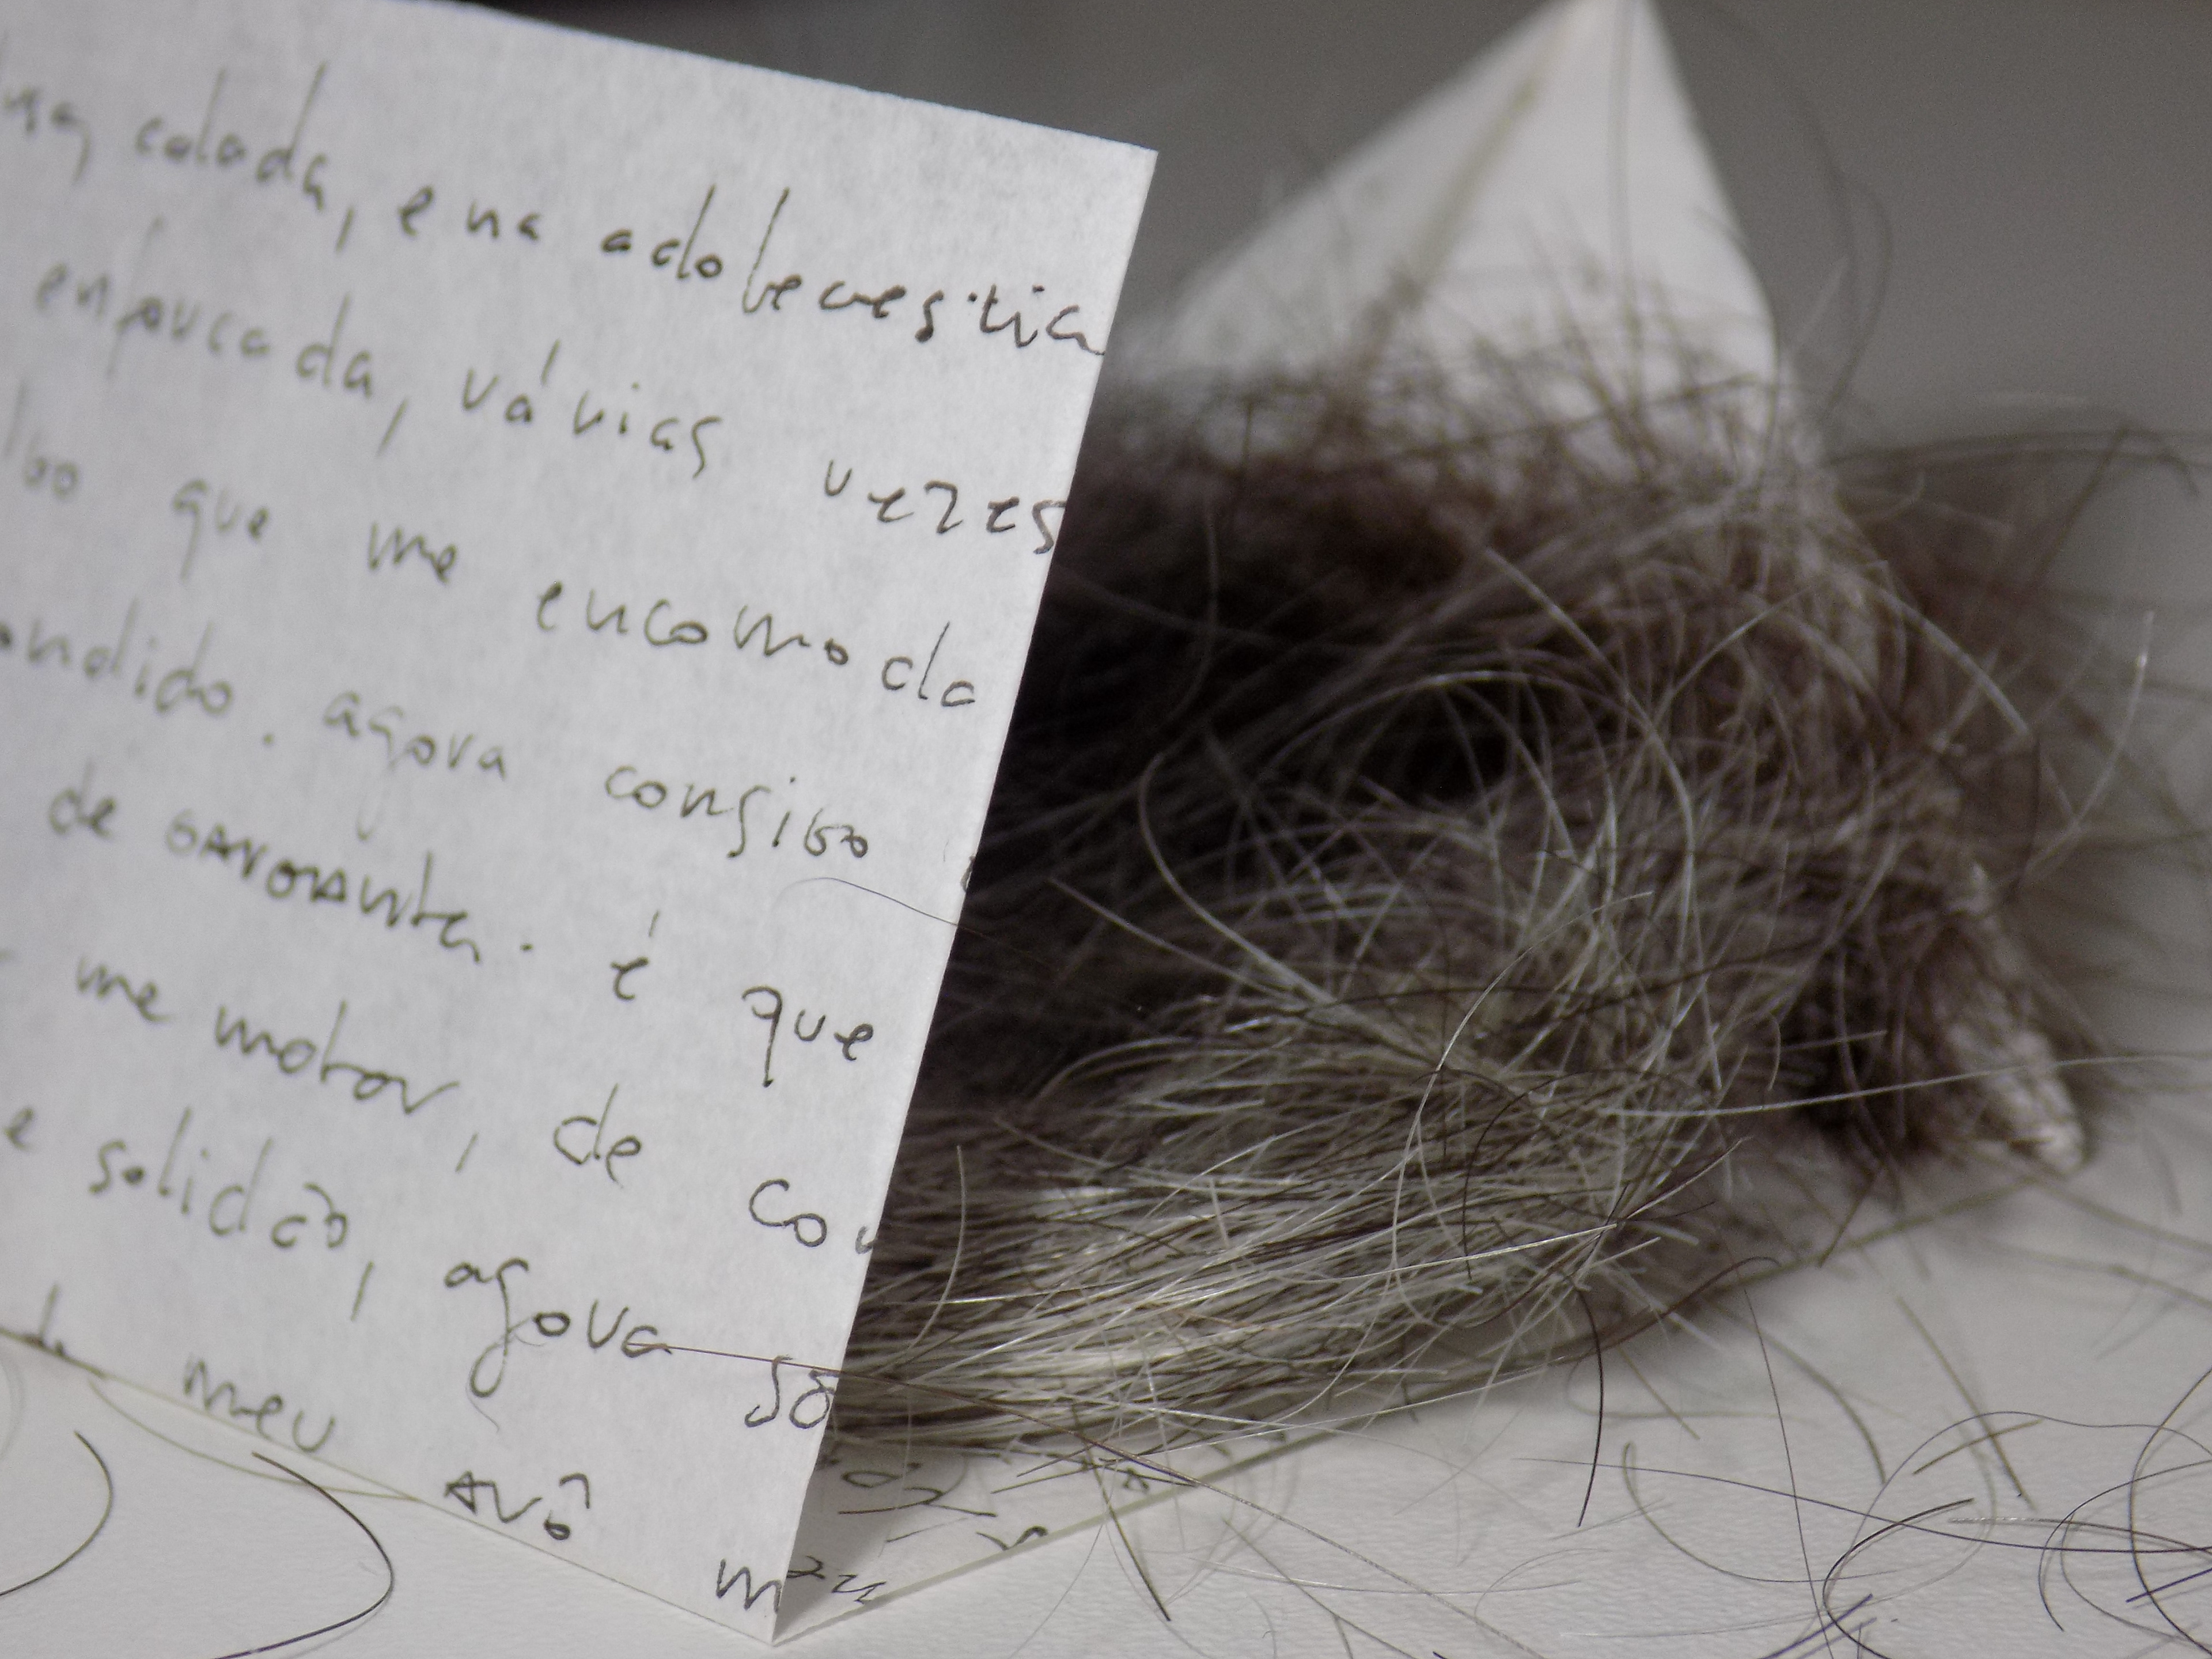 colada, e na adolecestia
enforcada, várias vezes
que me encomoda
ondido. agora consigo
de GARGANTA. é que
me matar, de co
e solidão, agora só
meu AVÔ m